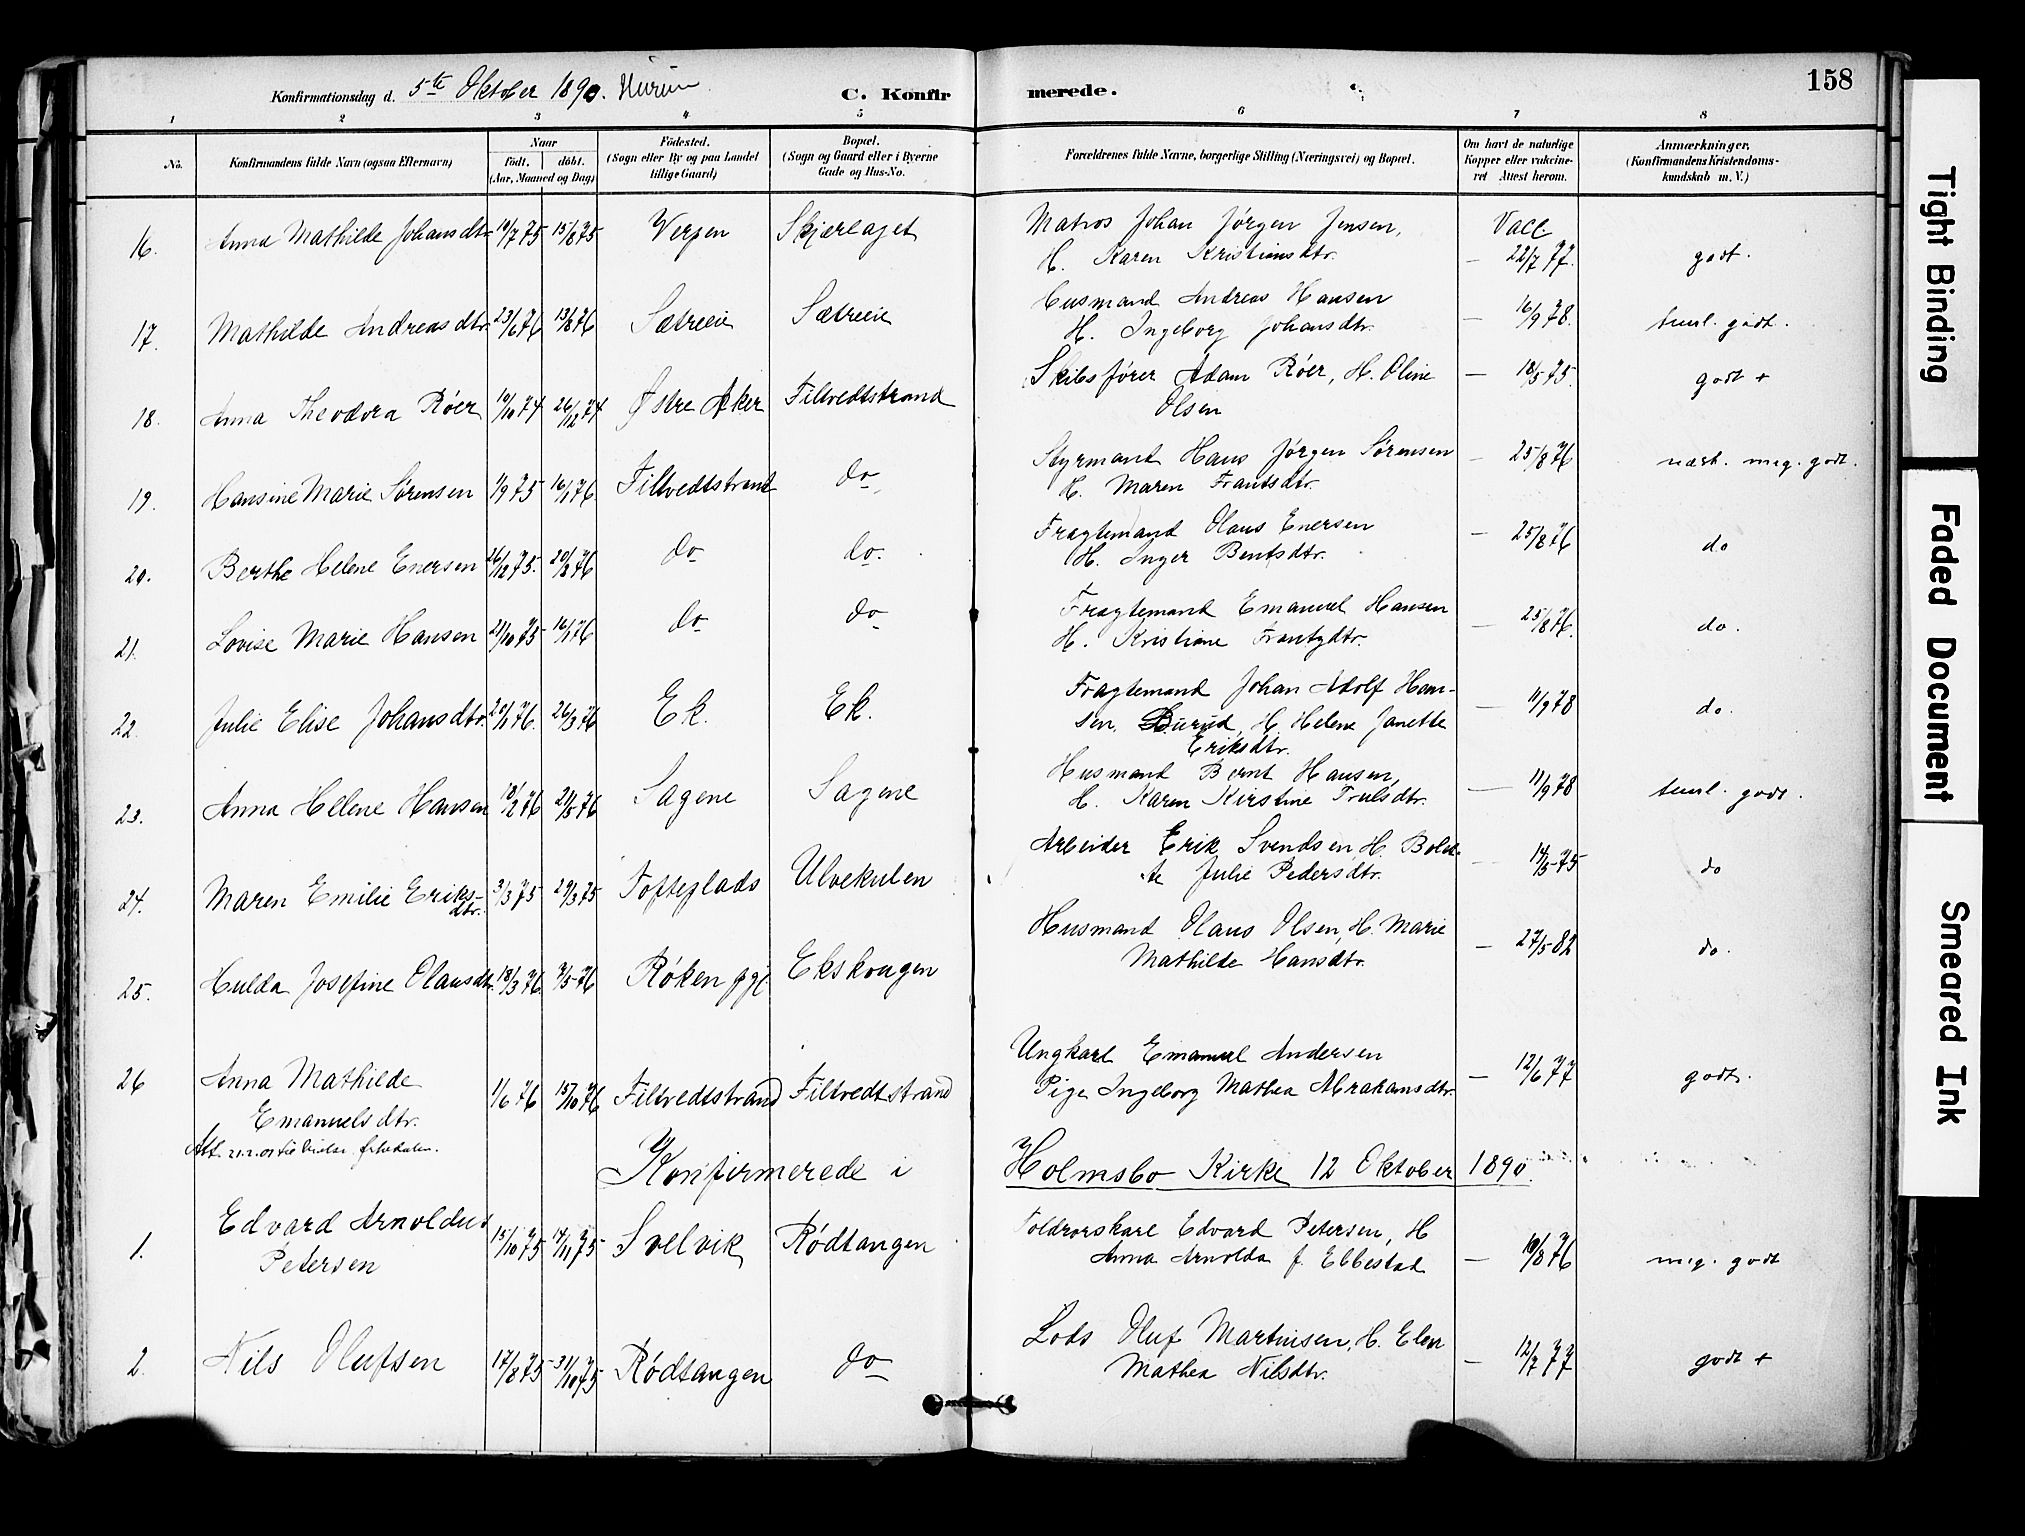 158
Konfirmationsdag d. 5te Oktober 1890. Hurum
C. Konfirmerede.
1 2 3 4 5 6 7 8
No.
Konfirmandens fulde Navn (ogsaa Efternavn)
Naar
født. døbt.
(Aar, Maaned og Dag)
Födested.
(Sogn eller By og paa Landet
tillige Gaard)
Bopæl.
(Sogn og Gaard eller i Byerne
Gade og Hus-No.
Forældrenes fulde Navne, borgerlige Stilling (Næringsvei) og Bopæl.
Om havt de naturlige
Kopper eller vakcine-
ret Attest herom.
Anmærkninger.
(Konfirmandens Kristendoms-
kundskab m. V.)
16. Anna Mathilde Johansdtr 19/7 75 15/8 75 Verpen Skjærlaget Matros Johan Jørgen Jensen, Vacc.
H. Karen Kristiansdtr. — 22/7 77. godt.
17. Mathilde Andreasdtr. 23/6 76 13/8 76 Sætreeie Sætreeie Husmand Andreas Hansen
H. Ingeborg Johansdtr. — 16/9 78. teml. godt.
18. Anna Theodora Røer 19/10 74 26/12 74 Østre Aker Filtvedtstrand Skibsfører Adam Røer, H. Oline
Olsen — 18/5 75. godt +
19. Hansine Marie Sørensen 1/9 75 16/1 76 Filtvedtstrand do Styrmand Hans Jørgen Sørensen
H. Maren Frantsdtr. — 25/8 76 næst. meg. godt.
20. Berthe Helene Enersen 26/12 75. 20/3 76 do do. Fragtemand Olaus Enersen
H. Inger Bentsdtr. — 25/8 76 do
21. Lovise Marie Hansen 21/10 75 16/1 76 do do Fragtemand Emanuel Hansen
H. Kristiane Frantzdtr. — 25/8 76. do.
22. Julie Elise Johansdtr. 20/1 76. 26/3 76 Ek. Ek. Fragtemand Johan Adolf Han-
sen Burud, H. Helene Janette
Eriksdtr. — 11/9 78 do.
23. Anna Helene Hansen 18/2 76 21/5 76 Sagene Sagene Husmand Bernt Hansen,
H. Karen Kirstine Trulsdtr. — 11/9 78 teml. godt.
24. Maren Emilie Eriks-
dtr. 3/3 75 29/3 75 Tofteglads Ulvekulen Arbeider Erik Svendsen, H. Bolet-
te Julie Pedersdtr. — 14/5 75 do
25. Hulda Josefine Olausdtr. 18/3 76. 7/5 76 Røken pgj. Ekskougen Husmand Olaus Olsen, H. Marie
Mathilde Hansdtr. — 27/5 82 do.
26 Anna Mathilde
Emanuelsdtr. 1/6 76 15/10 76 Filtvedtstrand Filtvedtstrand Ungkarl Emanuel Andersen
Pige Ingeborg Mathea Abrahamsdtr. — 12/6 77 godt.
Att. 21.2.07 til
Konfirmerede i Holmsbo Kirke 12 Oktober 1890.
1. Edvard Arnoldus
Petersen 15/10 75 14/11 75 Svelvik Rødtangen Toldrorskarl Edvard Petersen, H
Anna Arnolda f. Ebbestad — 19/8 76 meg. godt
2. Nils Olufsen 17/8 75 31/10 75 Rødtangen do Lods Oluf Martinsen, H. Elen
Mathea Nilsdtr. — 12/7 77 godt +
Tight Binding
Faded Document
Smeared Ink